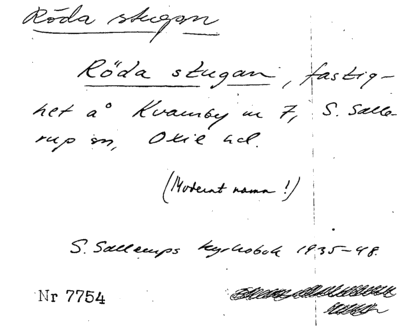 Röda stugan
Röda stugan, fastig-
het å Kvarnby nr 7, S. Salle-
rup sn, Oxie hd.
(Modernt namn!)
S. Sallerups kyrkobok 1935-48.
Nr 7754